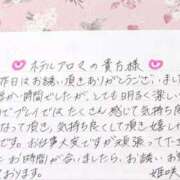 ホテルアロマの貴方様
昨日はお誘い頂きありがとうございまし
か時間でしたが、とても明るく楽しい
プレイではたくさん感じて気持ち良
なって頂き。気持ち良くして頂き嬉し
お仕事大変ですが頑張って下さ
お時間が合いましたら、お誘いお
ております。
姫咲